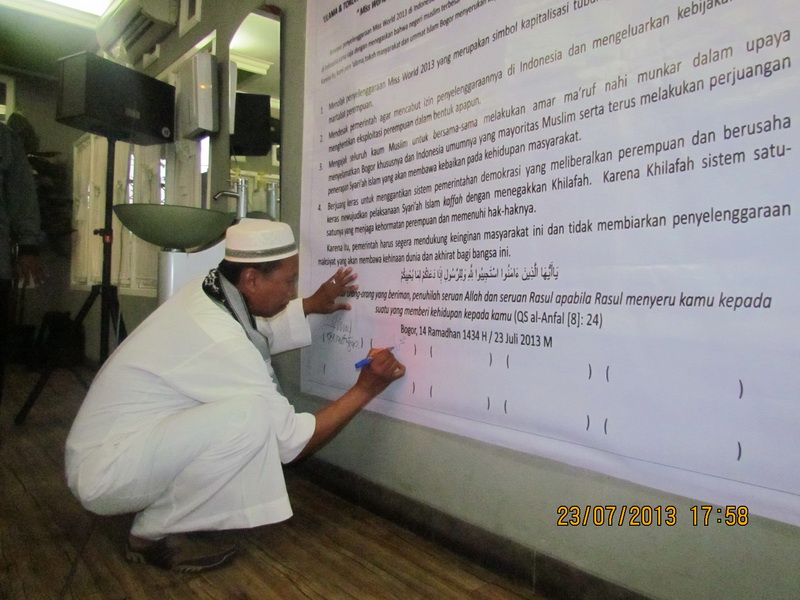 ULAMA & TOKOH
" Miss World
penyelenggaraan Miss World 2013 di Indonesia
penyelenggaraan Miss World 2013 yang merupakan simbol kapitalisasi tubuh
1. Menolak penyelenggaraannya di Indonesia dan mengeluarkan kebijakan
martabat perempuan.
2. Mendesak pemerintah agar mencabut izin
menghentikan eksploitasi perempuan dalam bentuk apapun.
3. Mengajak seluruh kaum Muslim untuk bersama-sama melakukan amar ma'ruf nahi munkar dalam upaya
menyelamatkan Bogor khususnya dan Indonesia umumnya yang mayoritas Muslim serta terus melakukan perjuangan
penerapan Syari'ah Islam yang akan membawa kebaikan pada kehidupan masyarakat.
4. Berjuang keras untuk menggantikan sistem pemerintahan demokrasi yang meliberalkan perempuan dan berusaha
keras mewujudkan pelaksanaan Syari'ah Islam kaffah dengan menegakkan Khilafah. Karena Khilafah sistem satu-
satunya yang menjaga kehormatan perempuan dan memenuhi hak-haknya.
Karena itu, pemerintah harus segera mendukung keinginan masyarakat ini dan tidak membiarkan penyelenggaraan
maksiyat yang akan membawa kehinaan dunia dan akhirat bagi bangsa ini.
يَاأَيُّهَا الَّذِينَ ءَامَنُوا اسْتَجِيبُوا لِلَّهِ وَلِلرَّسُولِ إِذَا دَعَاكُمْ لِمَا يُحْيِيكُمْ
orang-orang yang beriman, penuhilah seruan Allah dan seruan Rasul apabila Rasul menyeru kamu kepada
suatu yang memberi kehidupan kepada kamu (QS al-Anfal [8]: 24)
Bogor, 14 Ramadhan 1434 H / 23 Juli 2013 M
23/07/2013 17:58